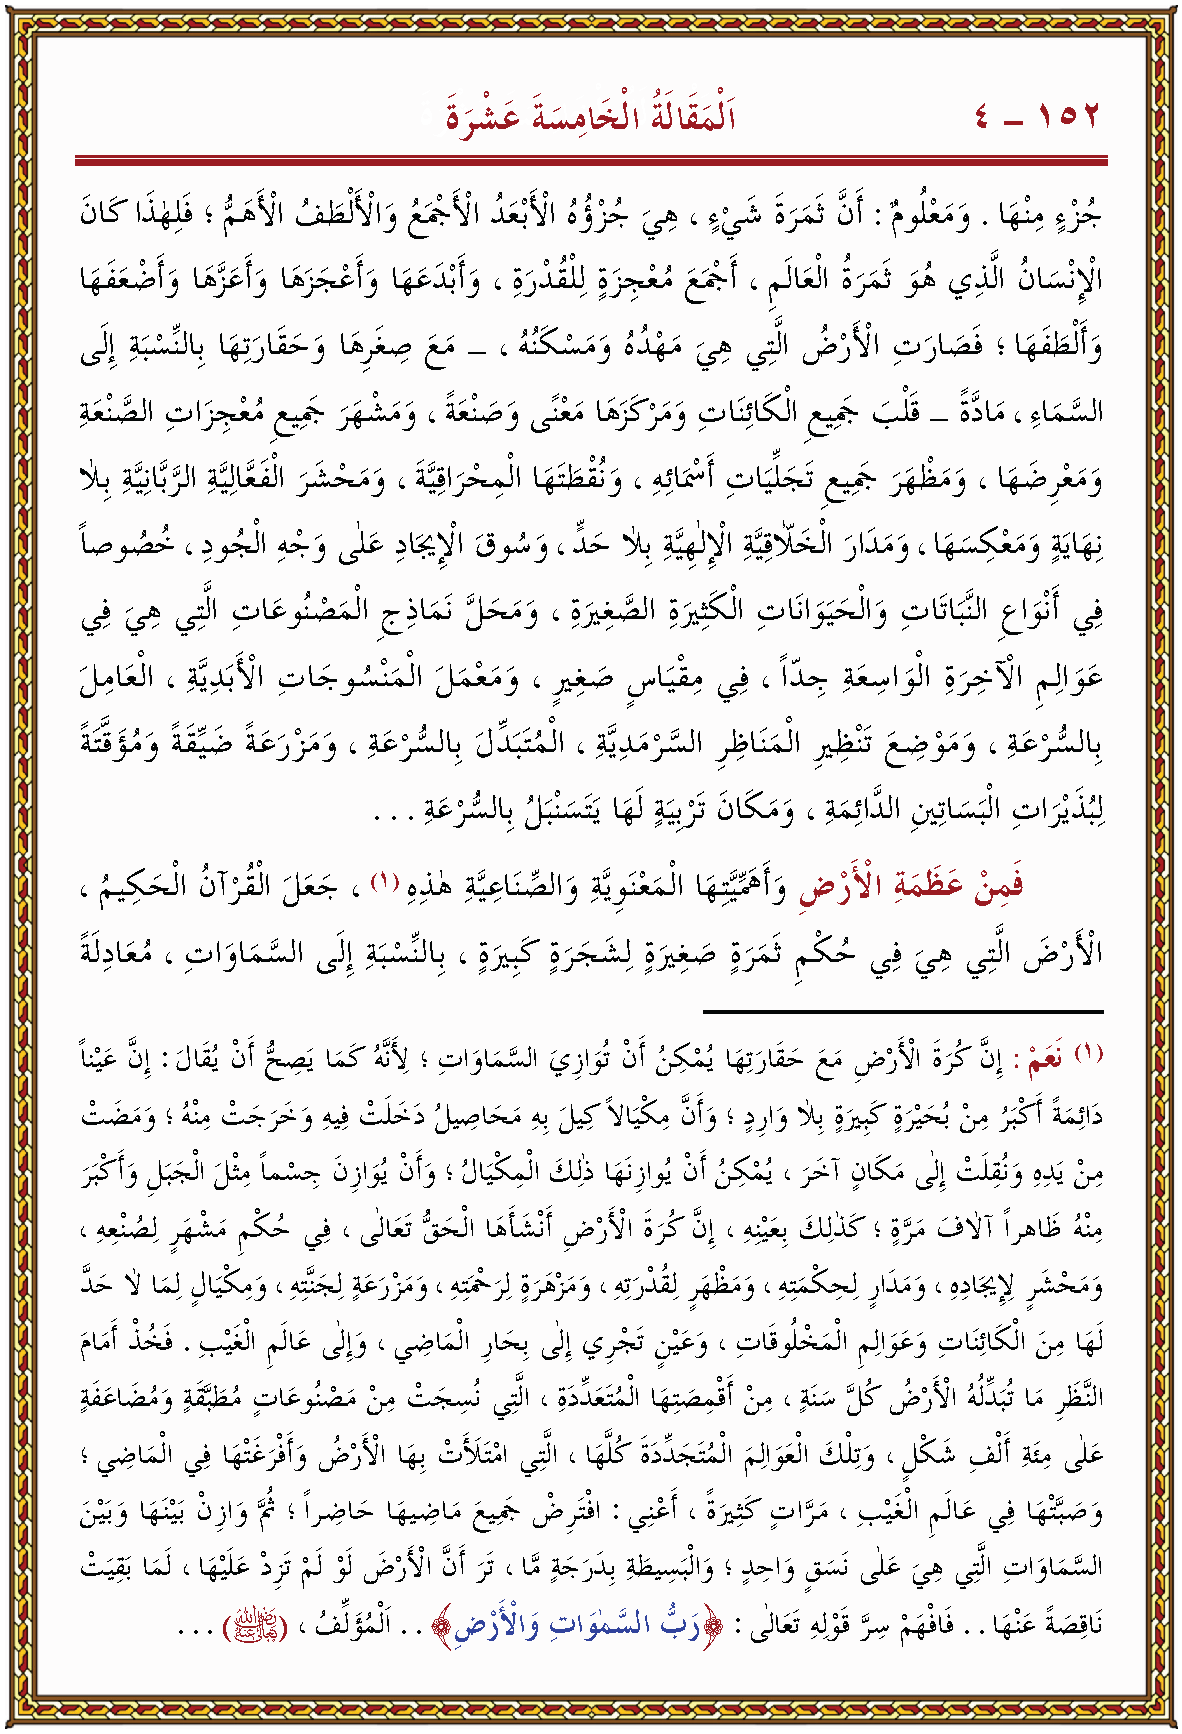 ١٥٢ ــ ٤ اَلْمَقَالَةُ الْخَامِسَةَ عَشْرَةَ
جُزْءٍ مِنْهَا . وَمَعْلُومٌ : أَنَّ ثَمَرَةَ شَيْءٍ ، هِيَ جُزْؤُهُ الْأَبْعَدُ الْأَجْمَعُ وَالْأَلْطَفُ الْأَهَمُّ ؛ فَلِهٰذَا كَانَ
الْإِنْسَانُ الَّذِي هُوَ ثَمَرَةُ الْعَالَمِ ، أَجْمَعَ مُعْجِزَةٍ لِلْقُدْرَةِ ، وَأَبْدَعَهَا وَأَعْجَزَهَا وَأَعَزَّهَا وَأَضْعَفَهَا
وَأَلْطَفَهَا ؛ فَصَارَتِ الْأَرْضُ الَّتِي هِيَ مَهْدُهُ وَمَسْكَنُهُ ، ــ مَعَ صِغَرِهَا وَحَقَارَتِهَا بِالنِّسْبَةِ إِلَى
السَّمَاءِ ، مَادَّةً ــ قَلْبَ جَمِيعِ الْكَائِنَاتِ وَمَرْكَزَهَا مَعْنًى وَصَنْعَةً ، وَمَشْهَرَ جَمِيعِ مُعْجِزَاتِ الصَّنْعَةِ
وَمَعْرِضَهَا ، وَمَظْهَرَ جَمِيعِ تَجَلِّيَاتِ أَسْمَائِهِ ، وَنُقْطَتَهَا الْمِحْرَاقِيَّةَ ، وَمَحْشَرَ الْفَعَّالِيَّةِ الرَّبَّانِيَّةِ بِلَا
نِهَايَةٍ وَمَعْكِسَهَا ، وَمَدَارَ الْخَلَّاقِيَّةِ الْإِلٰهِيَّةِ بِلَا حَدٍّ ، وَسُوقَ الْإِيجَادِ عَلٰى وَجْهِ الْجُودِ ، خُصُوصاً
فِي أَنْوَاعِ النَّبَاتَاتِ وَالْحَيَوَانَاتِ الْكَثِيرَةِ الصَّغِيرَةِ ، وَمَحَلَّ نَمَاذِجِ الْمَصْنُوعَاتِ الَّتِي هِيَ فِي
عَوَالِمِ الْآخِرَةِ الْوَاسِعَةِ جِدّاً ، فِي مِقْيَاسٍ صَغِيرٍ ، وَمَعْمَلَ الْمَنْسُوجَاتِ الْأَبَدِيَّةِ ، الْعَامِلَ
بِالسُّرْعَةِ ، وَمَوْضِعَ تَنْظِيرِ الْمَنَاظِرِ السَّرْمَدِيَّةِ ، الْمُتَبَدِّلَ بِالسُّرْعَةِ ، وَمَزْرَعَةً ضَيِّقَةً وَمُؤَقَّتَةً
لِبُذَيْرَاتِ الْبَسَاتِينِ الدَّائِمَةِ ، وَمَكَانَ تَرْبِيَةٍ لَهَا يَتَسَنْبَلُ بِالسُّرْعَةِ . . .
فَمِنْ عَظَمَةِ الْأَرْضِ وَأَهَمِّيَّتِهَا الْمَعْنَوِيَّةِ وَالصِّنَاعِيَّةِ هٰذِهِ (١) ، جَعَلَ الْقُرْآنُ الْحَكِيمُ ،
الْأَرْضَ الَّتِي هِيَ فِي حُكْمِ ثَمَرَةٍ صَغِيرَةٍ لِشَجَرَةٍ كَبِيرَةٍ ، بِالنِّسْبَةِ إِلَى السَّمَاوَاتِ ، مُعَادِلَةً
(١) نَعَمْ : إِنَّ كُرَةَ الْأَرْضِ مَعَ حَقَارَتِهَا يُمْكِنُ أَنْ تُوَازِيَ السَّمَاوَاتِ ؛ لِأَنَّهُ كَمَا يَصِحُّ أَنْ يُقَالَ : إِنَّ عَيْناً
دَائِمَةً أَكْبَرُ مِنْ بُحَيْرَةٍ كَبِيرَةٍ بِلَا وَارِدٍ ؛ وَأَنَّ مِكْيَالاً كِيلَ بِهِ مَحَاصِيلُ دَخَلَتْ فِيهِ وَخَرَجَتْ مِنْهُ ؛ وَمَضَتْ
مِنْ يَدِهِ وَنُقِلَتْ إِلٰى مَكَانٍ آخَرَ ، يُمْكِنُ أَنْ يُوَازِنَهَا ذٰلِكَ الْمِكْيَالُ ؛ وَأَنْ يُوَازِنَ جِسْماً مِثْلَ الْجَبَلِ وَأَكْبَرَ
مِنْهُ ظَاهِراً آلَافَ مَرَّةٍ ؛ كَذٰلِكَ بِعَيْنِهِ ، إِنَّ كُرَةَ الْأَرْضِ أَنْشَأَهَا الْحَقُّ تَعَالٰى ، فِي حُكْمِ مَشْهَرٍ لِصُنْعِهِ ،
وَمَحْشَرٍ لِإِيجَادِهِ ، وَمَدَارٍ لِحِكْمَتِهِ ، وَمَظْهَرٍ لِقُدْرَتِهِ ، وَمَزْهَرَةٍ لِرَحْمَتِهِ ، وَمَزْرَعَةٍ لِجَنَّتِهِ ، وَمِكْيَالٍ لِمَا لَا حَدَّ
لَهَا مِنَ الْكَائِنَاتِ وَعَوَالِمِ الْمَخْلُوقَاتِ ، وَعَيْنٍ تَجْرِي إِلٰى بِحَارِ الْمَاضِي ، وَإِلٰى عَالَمِ الْغَيْبِ . فَخُذْ أَمَامَ
النَّظَرِ مَا تُبَدِّلُهُ الْأَرْضُ كُلَّ سَنَةٍ ، مِنْ أَقْمِصَتِهَا الْمُتَعَدِّدَةِ ، الَّتِي نُسِجَتْ مِنْ مَصْنُوعَاتٍ مُطَبَّقَةٍ وَمُضَاعَفَةٍ
عَلٰى مِئَةِ أَلْفِ شَكْلٍ ، وَتِلْكَ الْعَوَالِمَ الْمُتَجَدِّدَةَ كُلَّهَا ، الَّتِي امْتَلَأَتْ بِهَا الْأَرْضُ وَأَفْرَغَتْهَا فِي الْمَاضِي ؛
وَصَبَّتْهَا فِي عَالَمِ الْغَيْبِ ، مَرَّاتٍ كَثِيرَةً ، أَعْنِي : افْتَرِضْ جَمِيعَ مَاضِيهَا حَاضِراً ؛ ثُمَّ وَازِنْ بَيْنَهَا وَبَيْنَ
السَّمَاوَاتِ الَّتِي هِيَ عَلٰى نَسَقٍ وَاحِدٍ ؛ وَالْبَسِيطَةِ بِدَرَجَةٍ مَّا ، تَرَ أَنَّ الْأَرْضَ لَوْ لَمْ تَزِدْ عَلَيْهَا ، لَمَا بَقِيَتْ
نَاقِصَةً عَنْهَا . . فَافْهَمْ سِرَّ قَوْلِهِ تَعَالٰى : ﴿رَبُّ السَّمٰوَاتِ وَالْأَرْضِ﴾ . . اَلْمُؤَلِّفُ ، (رَضِيَ اللهُ تَعَالَى عَنْهُ) . . .